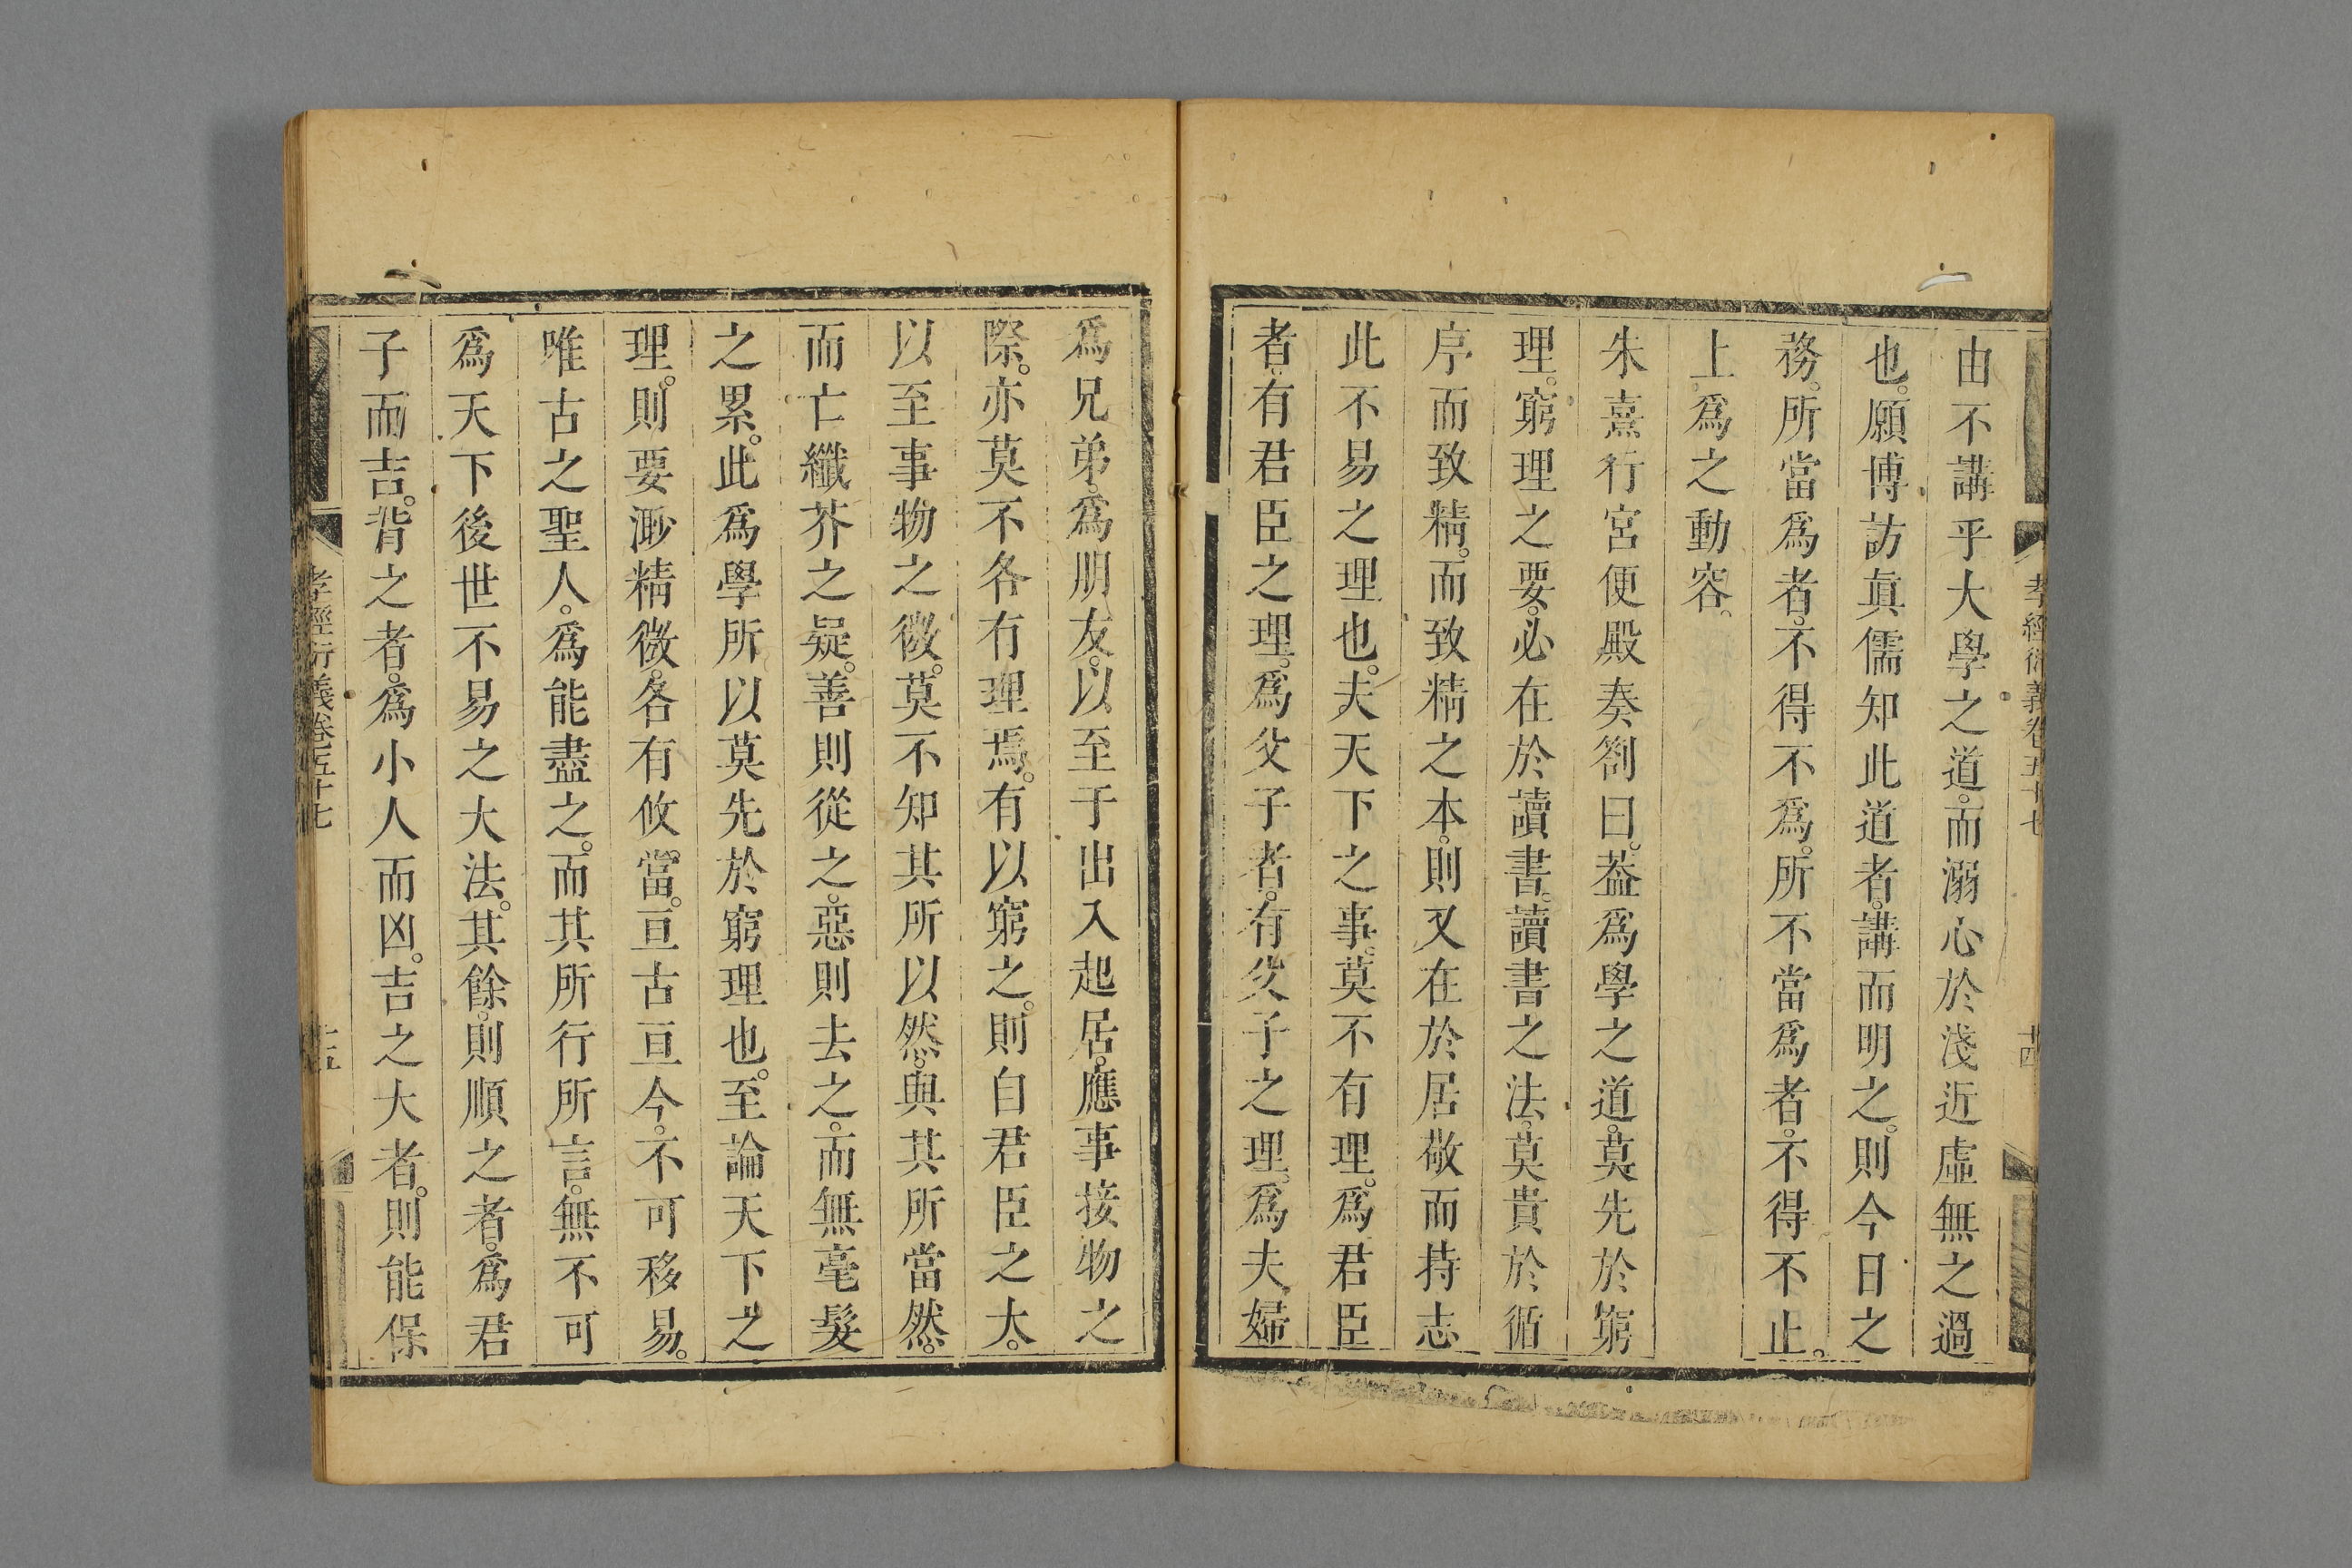 孝經衍義卷五十七
十四
由不講乎大學之道。而溺心於淺近虛無之過
也。願博訪真儒知此道者。講而明之。則今日之
務。所當爲者。不得不爲。所不當爲者。不得不止。
上爲之動容。
朱熹行宮便殿奏劄曰。葢爲學之道。莫先於窮
理。窮理之要。必在於讀書。讀書之法。莫貴於循
序而致精。而致精之本。則又在於居敬而持志
此不易之理也。夫天下之事。莫不有理。爲君臣
者。有君臣之理。爲父子者。有父子之理。爲夫婦
爲兄弟。爲朋友。以至于出入起居。應事接物之
際。亦莫不各有理焉。有以窮之。則自君臣之大。
以至事物之微。莫不知其所以然。與其所當然。
而亡纖芥之疑。善則從之。惡則去之。而無毫髮
之累。此爲學所以莫先於窮理也。至論天下之
理。則要渺精微。各有攸當。亘古亘今。不可移易。
唯古之聖人。爲能盡之。而其所行所言。無不可
爲天下後世不易之大法。其餘。則順之者。爲君
子而吉。背之者。爲小人而凶。吉之大者。則能保
孝經衍義卷五十七
十五